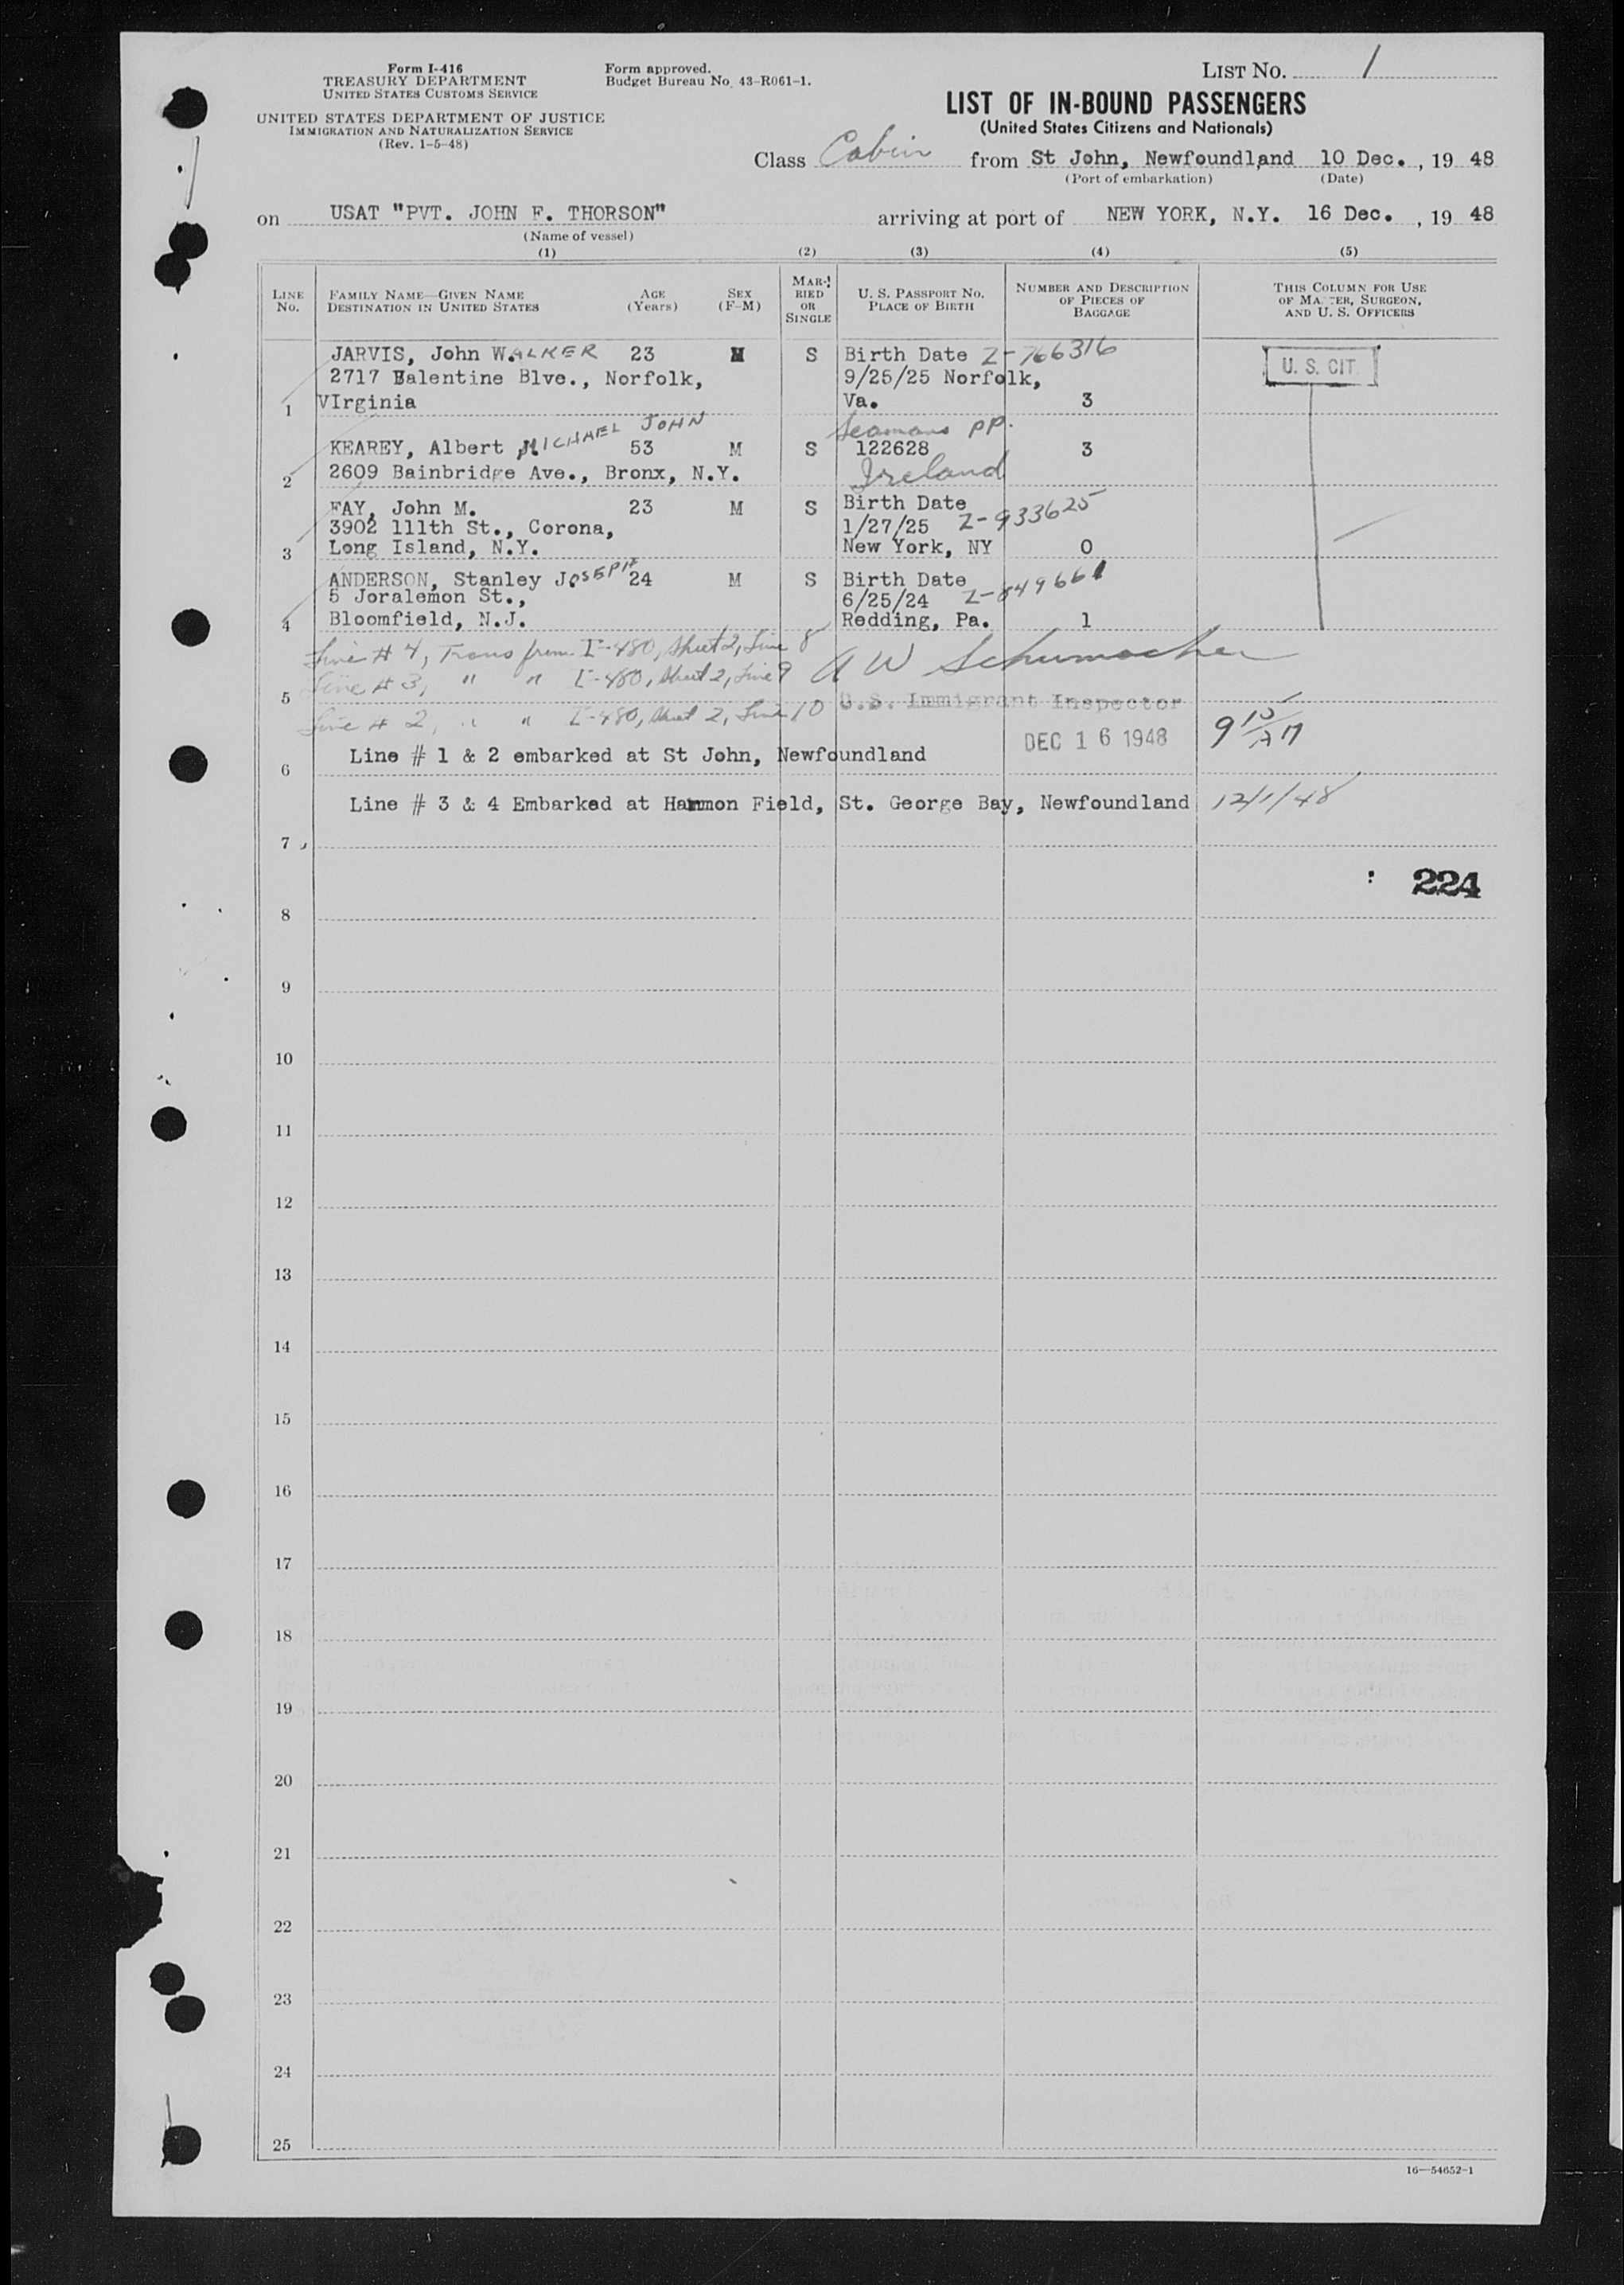 Form I-416
TREASURY DEPARTMENT
UNITED STATES CUSTOMS SERVICE
UNITED STATES DEPARTMENT OF JUSTICE
IMMIGRATION AND NATURALIZATION SERVICE
(Rev. 1-5-48)
Form approved.
Budget Bureau No. 43-R061-1.
LIST NO. 1
LIST OF IN-BOUND PASSENGERS
(United States Citizens and Nationals)
Class Cabin from St John, Newfoundland 10 Dec., 19 48
(Port of embarkation) (Date)
on USAT "PVT. JOHN F. THORSON" arriving at port of NEW YORK, N.Y. 16 Dec., 19 48
(Name of vessel)
(1) (2) (3) (4) (5)
LINE NO.
FAMILY NAME—GIVEN NAME
DESTINATION IN UNITED STATES
AGE (Years)
SEX (F-M)
MARRIED OR SINGLE
U. S. PASSPORT NO.
PLACE OF BIRTH
NUMBER AND DESCRIPTION OF PIECES OF BAGGAGE
THIS COLUMN FOR USE OF MASTER, SURGEON, AND U. S. OFFICERS
JARVIS, John WALKER 23 M S Birth Date Z-766316 U. S. CIT.
2717 Balentine Blve., Norfolk, 9/25/25 Norfolk,
1 VIrginia Va. 3
Seamans PP.
KEAREY, Albert MICHAEL JOHN 53 M S 122628 3
2 2609 Bainbridge Ave., Bronx, N.Y. Ireland
FAY, John M. 23 M S Birth Date
3902 111th St., Corona, 1/27/25 Z-933625
3 Long Island, N.Y. New York, NY 0
ANDERSON, Stanley JOSEPH 24 M S Birth Date
5 Joralemon St., 6/25/24 Z-849661
4 Bloomfield, N.J. Redding, Pa. 1
Line # 4, Trans from I-480, Sheet 2, Line 8
A W Schumacher
Line # 3, " " I-480, Sheet 2, Line 9
5 U.S. Immigrant Inspector
Line # 2, " " I-480, Sheet 2, Line 10
DEC 16 1948
6 Line # 1 & 2 embarked at St John, Newfoundland
Line # 3 & 4 Embarked at Harmon Field, St. George Bay, Newfoundland 12/1/48
7
224
8
9
10
11
12
13
14
15
16
17
18
19
20
21
22
23
24
25
16—54652-1